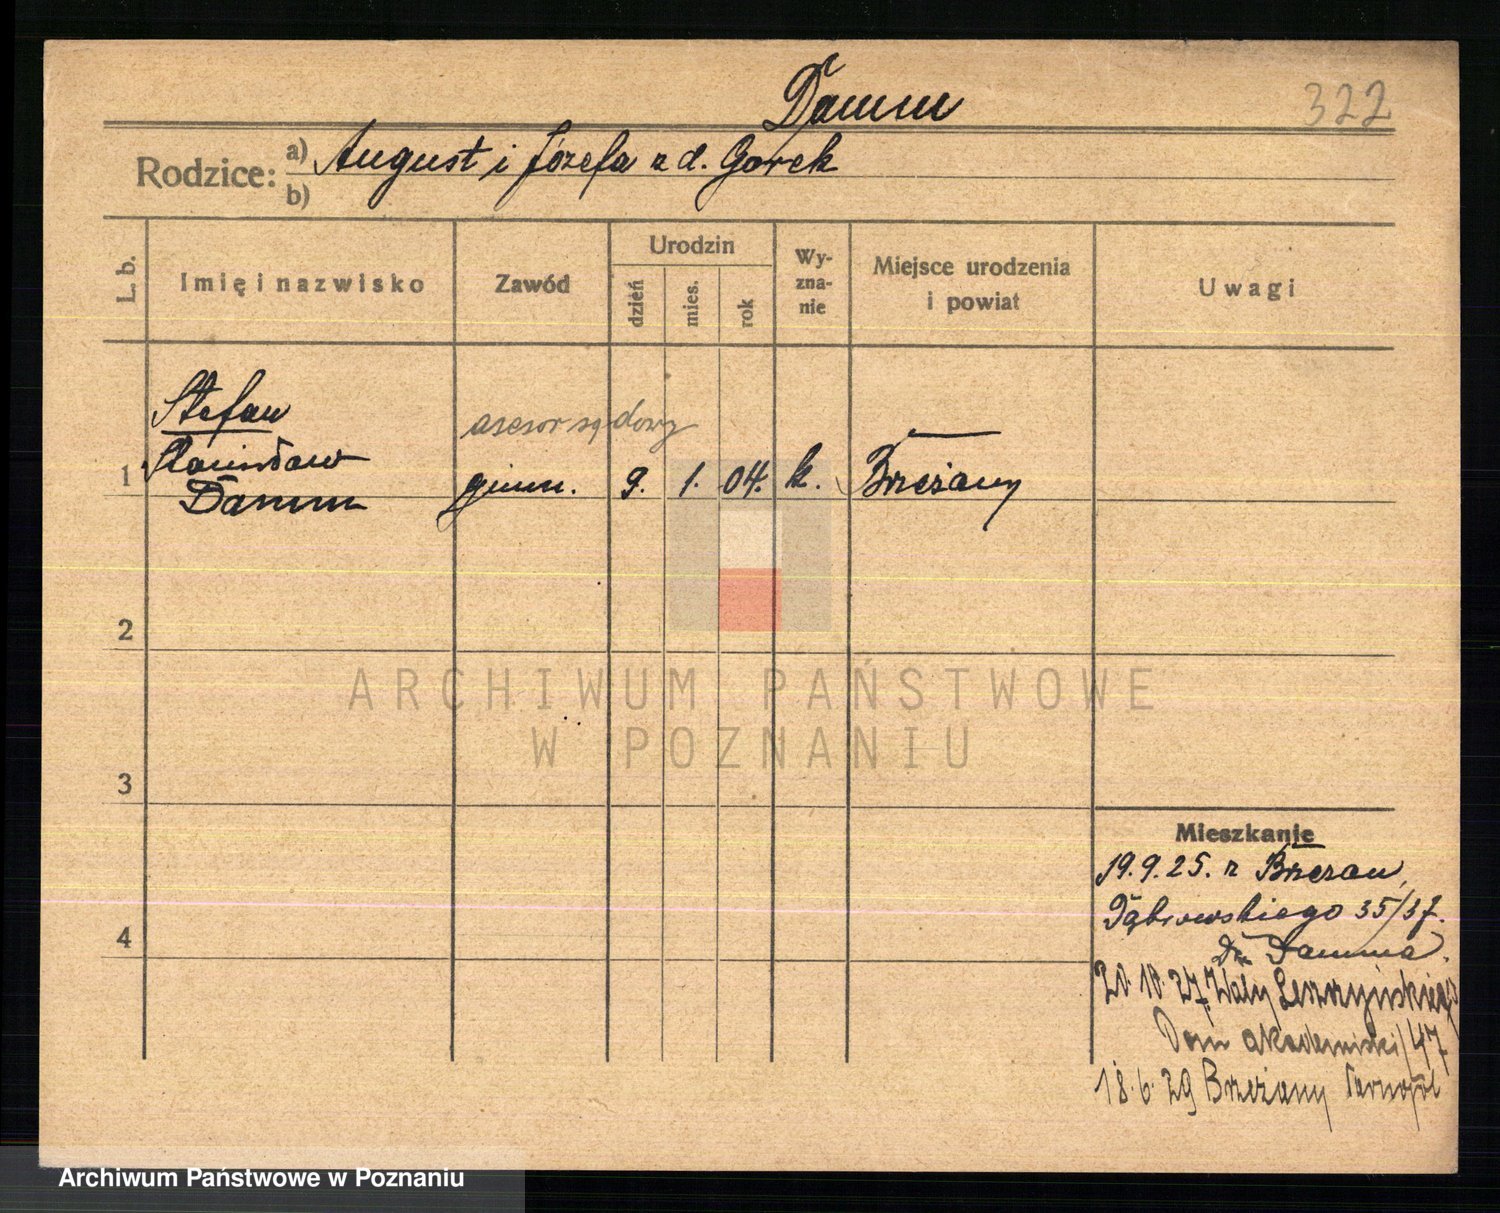 Damm
322
Rodzice: a) August i Józefa z d. Gorek
b)
L. b.
Imię i nazwisko
Zawód
Urodzin
dzień
mies.
rok
Wy-
zna-
nie
Miejsce urodzenia
i powiat
Uwagi
Stefan
asesor sądowy
Stanisław
1 Damm gimn. 9. 1. 04. k. Brzeżany
2
ARCHIWUM PAŃSTWOWE
W POZNANIU
3
Mieszkanie
19.9.25. z Brzezan,
Dąbrowskiego 35/37.
4
Damma.
20.10.27. Wały Leszczyńskiego
Dom akademicki/47
18.6.29 Brzeżany Tarnopol
Archiwum Państwowe w Poznaniu